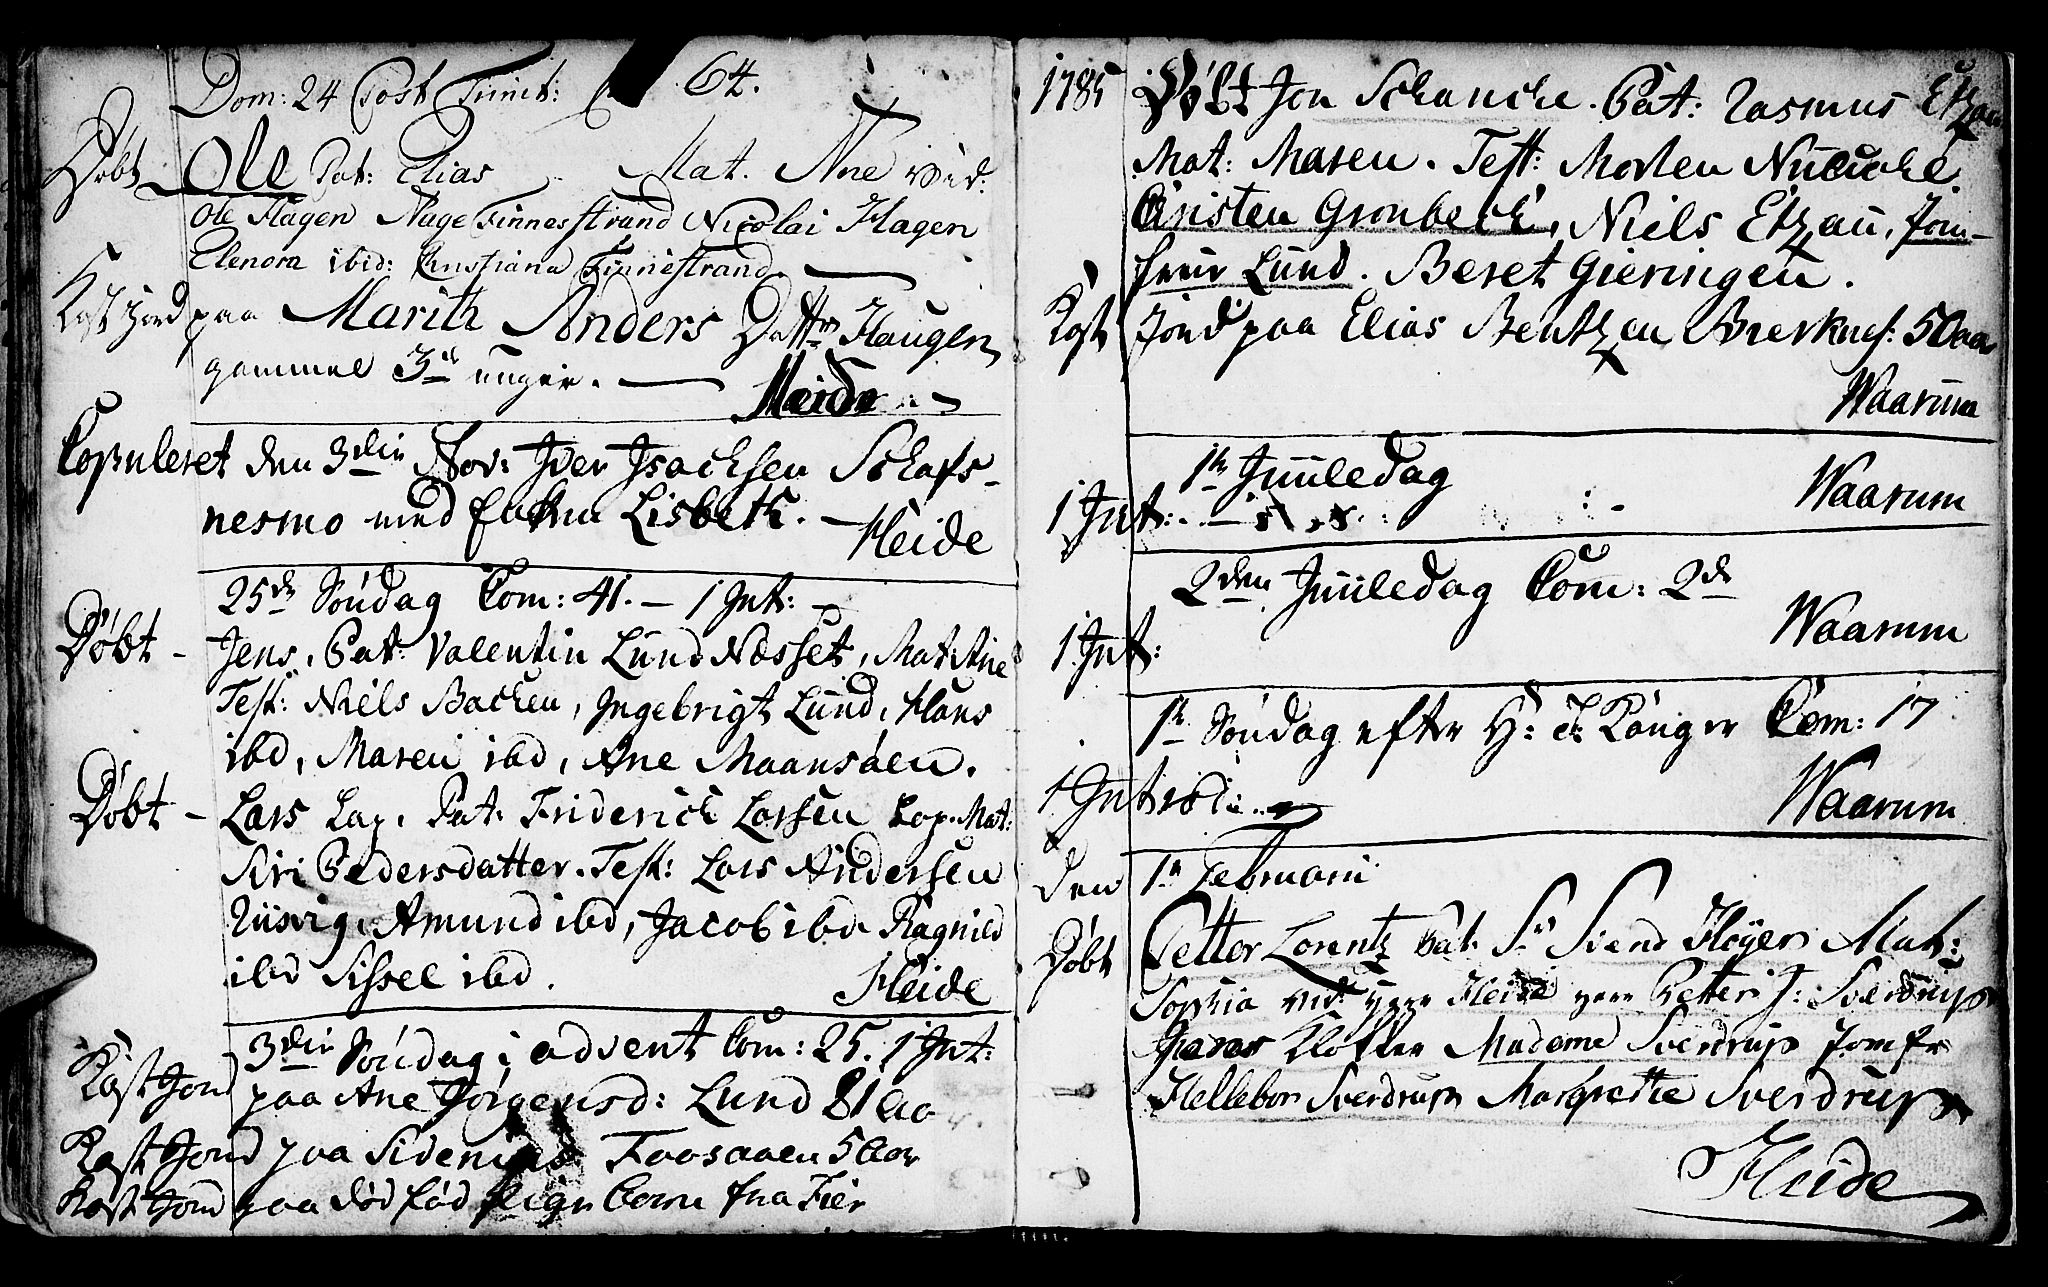 Dom: 24 Post Trinit: 64.
Døbt Ole Pat: Elias Mat. Ane vid:
Ole Hagen Aage Finnesstrand Nicolai Hagen
Elenora ibid: Christiana Finnestrand.
Kast Jord paa Marith Anders Datter Haugen
gammel 3 uger. Heide
Copuleret den 3die Nov: Iver Isachsen Schafs-
nesmo med Enken Lisbeth. Heide
25de Søndag Com: 41. 1 Int:
Døbt - Jens, Pat: Valentin Lund Næsset, Mat: Ane
Test: Niels Backen, Ingebrigt Lund, Hans
ibd, Maren ibd, Ane Maansøen.
Døbt - Lars Lap. Pat: Friderich Larsen Lap. Mat:
Siri Pedersdatter. Test: Lars Andersen
Amund ibd, Jacob ibd Ragnild
ibd Sissel ibd. Heide
3die Søndag i advent Com: 25. 1 Int:
Kast Jord paa Ane Jørgensd: Lund 81 aa
Kast Jord paa Foosaaen 5 aar
Kast Jord paa død fød pige barn fra Lier
1785 Døbt Jon Schancke. Pat: Rasmus Etzau
Mat: Maren. Test: Morten
Christen Grønbech, Niels Etzau, Jom-
frue Lund. Beret Gieringen.
Kast Jord paa Elias Bentzen 50 aar
Waarum
1te Juuledag
1 Int: Waarum
2den Juuledag Com: 2de
1 Int: Waarum
1te Søndag efter H: 3 Konger Com: 17
1 Introd: Waarum
den 1te Februarii
Døbt Petter Lorentz Pat: Sr Svend Høyer Mat:
Sophia vid: Herr Heide Herr Petter J: Sverdrup
Kløften Madame Sverdrup Jomfr
Hellebor Sverdrup Margrethe Sverdrup
Heide